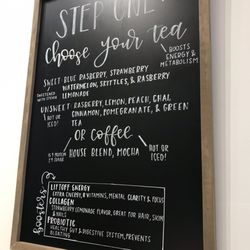 STEP ONE
choose your tea
BOOSTS
ENERGY &
METABOLISM
SWEET-BLUE RASBERRY, STRAWBERRY
WATERMELON, SKITTLES, & RASBERRY
LEMONADE
SWEETENED
WITH STEVIA
UNSWEET-RASBERRY, LEMON, PEACH, CHAI,
CINNAMON, POMEGRANATE, & GREEN
TEA
HOT OR
ICED!
OR COFFEE
HOUSE BLEND, MOCHA
15 g PROTEIN
HOT OR
ICED!
boosters
LIFTOFF ENERGY
EXTRA ENERGY, B VITAMINS, MENTAL CLARITY & FOCUS
COLLAGEN
STRAWBERRY LEMONADE FLAVOR, GREAT FOR HAIR, SKIN
& NAILS
PROBIOTIC
HEALTHY GUT & DIGESTIVE SYSTEM, PREVENTS
BLOATING